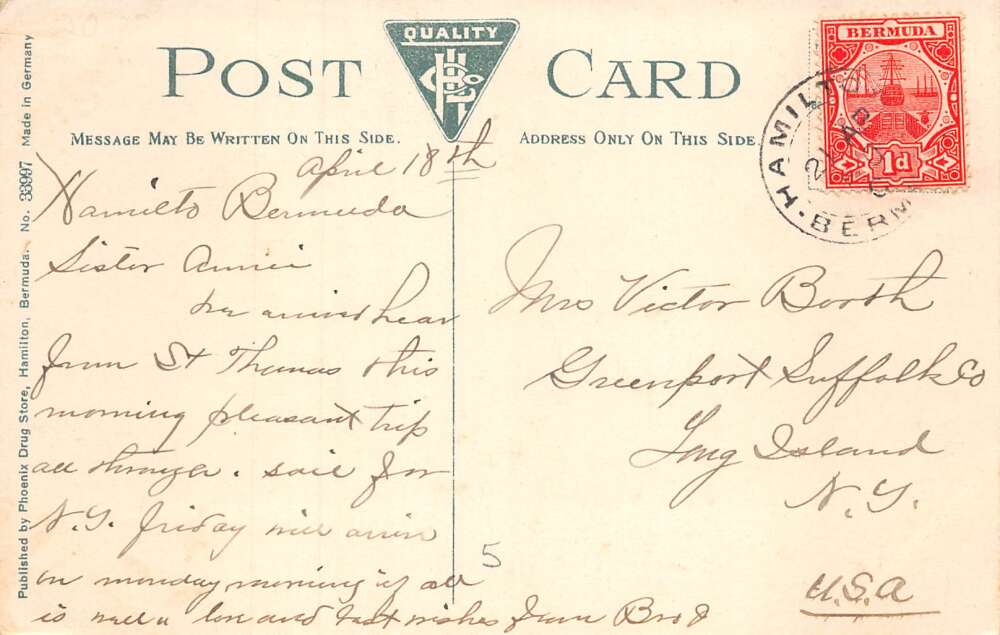 POST CARD
QUALITY
MESSAGE MAY BE WRITTEN ON THIS SIDE.
ADDRESS ONLY ON THIS SIDE.
BERMUDA
1d
HAMILTON
BERM
Published by Phoenix Drug Store, Hamilton, Bermuda. No. 33997 Made in Germany
April 18th
Hamilto Bermuda
Sister Annie
we arrived hear
from St Thomas this
morning pleasant trip
all through. sail for
N.Y. friday will arive
on monday morning if all
is well love and best wishes from Bro
5
Mrs Victor Booth
Greenport Suffolk Co
Long Island
N.Y.
U.S.A